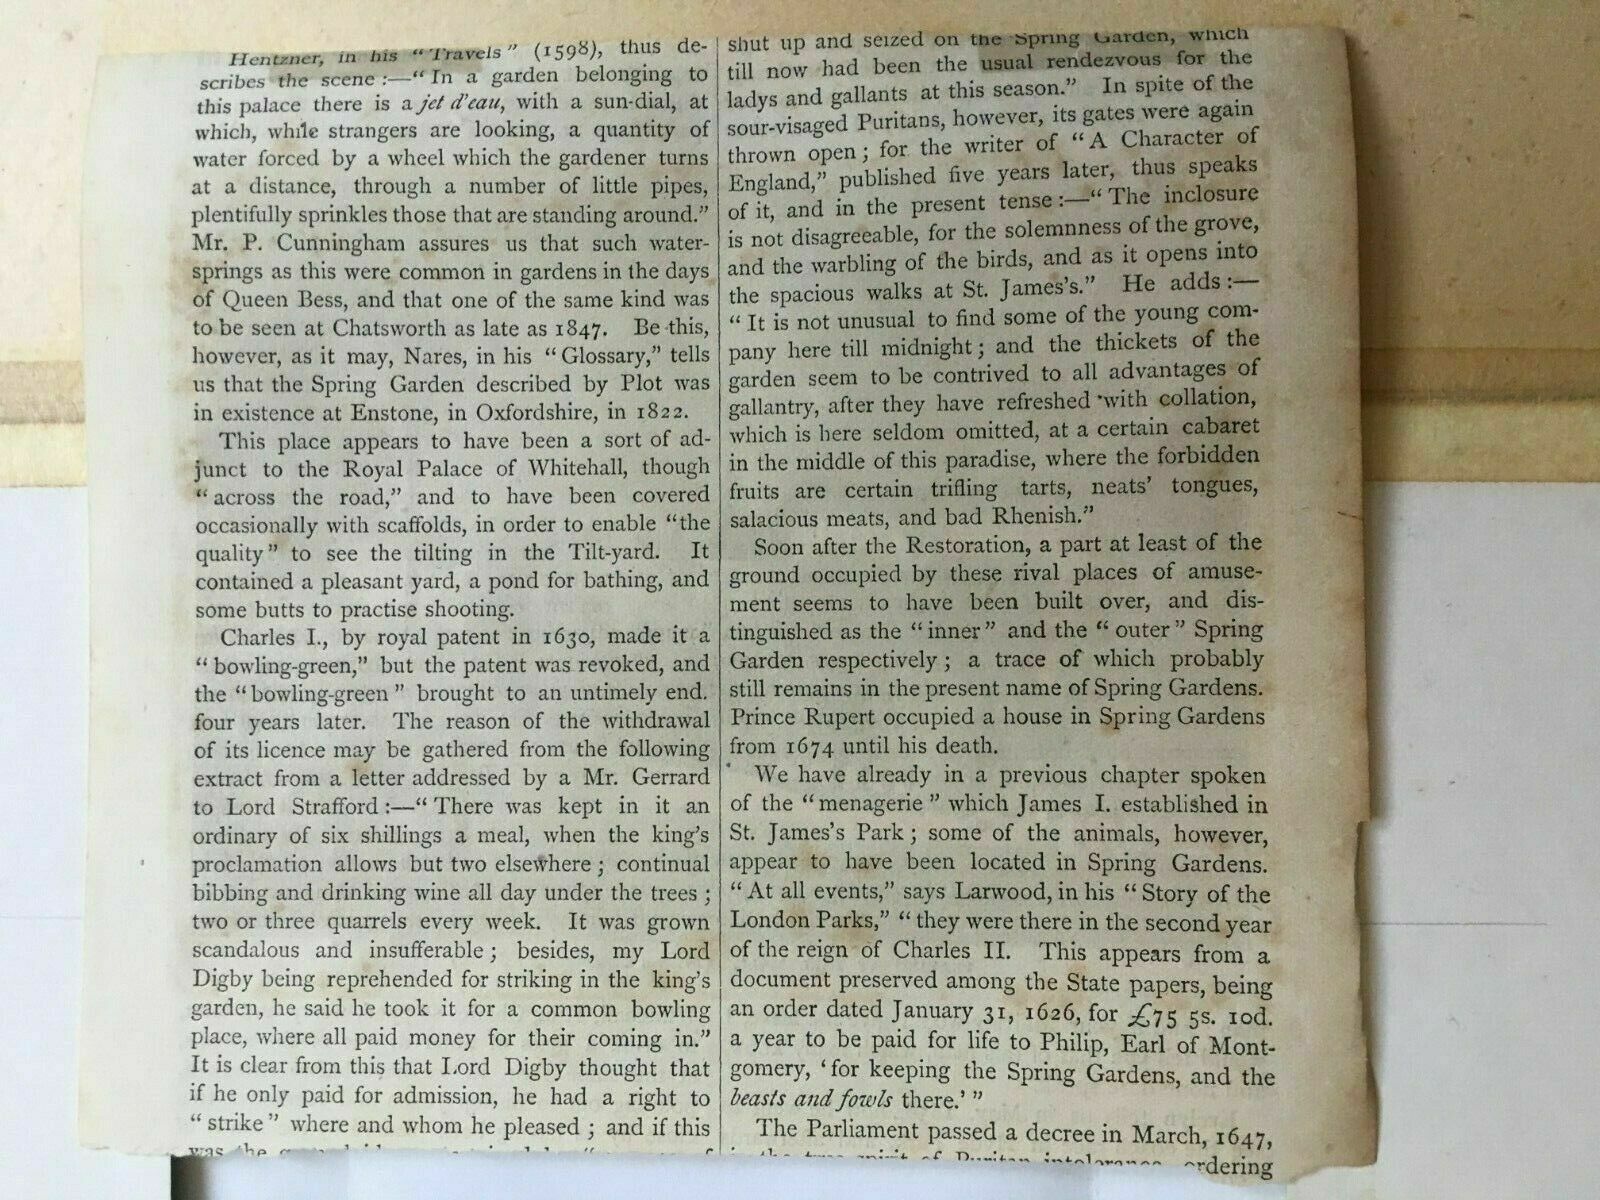 Hentzner, in his "Travels" (1598), thus de-
scribes the scene :—"In a garden belonging to
this palace there is a jet d'eau, with a sun-dial, at
which, while strangers are looking, a quantity of
water forced by a wheel which the gardener turns
at a distance, through a number of little pipes,
plentifully sprinkles those that are standing around."
Mr. P. Cunningham assures us that such water-
springs as this were common in gardens in the days
of Queen Bess, and that one of the same kind was
to be seen at Chatsworth as late as 1847. Be this,
however, as it may, Nares, in his "Glossary," tells
us that the Spring Garden described by Plot was
in existence at Enstone, in Oxfordshire, in 1822.
This place appears to have been a sort of ad-
junct to the Royal Palace of Whitehall, though
"across the road," and to have been covered
occasionally with scaffolds, in order to enable "the
quality" to see the tilting in the Tilt-yard. It
contained a pleasant yard, a pond for bathing, and
some butts to practise shooting.
Charles I., by royal patent in 1630, made it a
"bowling-green," but the patent was revoked, and
the "bowling-green" brought to an untimely end.
four years later. The reason of the withdrawal
of its licence may be gathered from the following
extract from a letter addressed by a Mr. Gerrard
to Lord Strafford :—"There was kept in it an
ordinary of six shillings a meal, when the king's
proclamation allows but two elsewhere ; continual
bibbing and drinking wine all day under the trees ;
two or three quarrels every week. It was grown
scandalous and insufferable ; besides, my Lord
Digby being reprehended for striking in the king's
garden, he said he took it for a common bowling
place, where all paid money for their coming in."
It is clear from this that Lord Digby thought that
if he only paid for admission, he had a right to
"strike" where and whom he pleased ; and if this
was the
shut up and seized on the Spring Garden, which
till now had been the usual rendezvous for the
ladys and gallants at this season." In spite of the
sour-visaged Puritans, however, its gates were again
thrown open ; for the writer of "A Character of
England," published five years later, thus speaks
of it, and in the present tense :—"The inclosure
is not disagreeable, for the solemnness of the grove,
and the warbling of the birds, and as it opens into
the spacious walks at St. James's." He adds :—
"It is not unusual to find some of the young com-
pany here till midnight ; and the thickets of the
garden seem to be contrived to all advantages of
gallantry, after they have refreshed with collation,
which is here seldom omitted, at a certain cabaret
in the middle of this paradise, where the forbidden
fruits are certain trifling tarts, neats' tongues,
salacious meats, and bad Rhenish."
Soon after the Restoration, a part at least of the
ground occupied by these rival places of amuse-
ment seems to have been built over, and dis-
tinguished as the "inner" and the "outer" Spring
Garden respectively ; a trace of which probably
still remains in the present name of Spring Gardens.
Prince Rupert occupied a house in Spring Gardens
from 1674 until his death.
We have already in a previous chapter spoken
of the "menagerie" which James I. established in
St. James's Park ; some of the animals, however,
appear to have been located in Spring Gardens.
"At all events," says Larwood, in his "Story of the
London Parks," "they were there in the second year
of the reign of Charles II. This appears from a
document preserved among the State papers, being
an order dated January 31, 1626, for £75 5s. 10d.
a year to be paid for life to Philip, Earl of Mont-
gomery, 'for keeping the Spring Gardens, and the
beasts and fowls there.'"
The Parliament passed a decree in March, 1647,
in the true spirit of Puritan intolerance, ordering